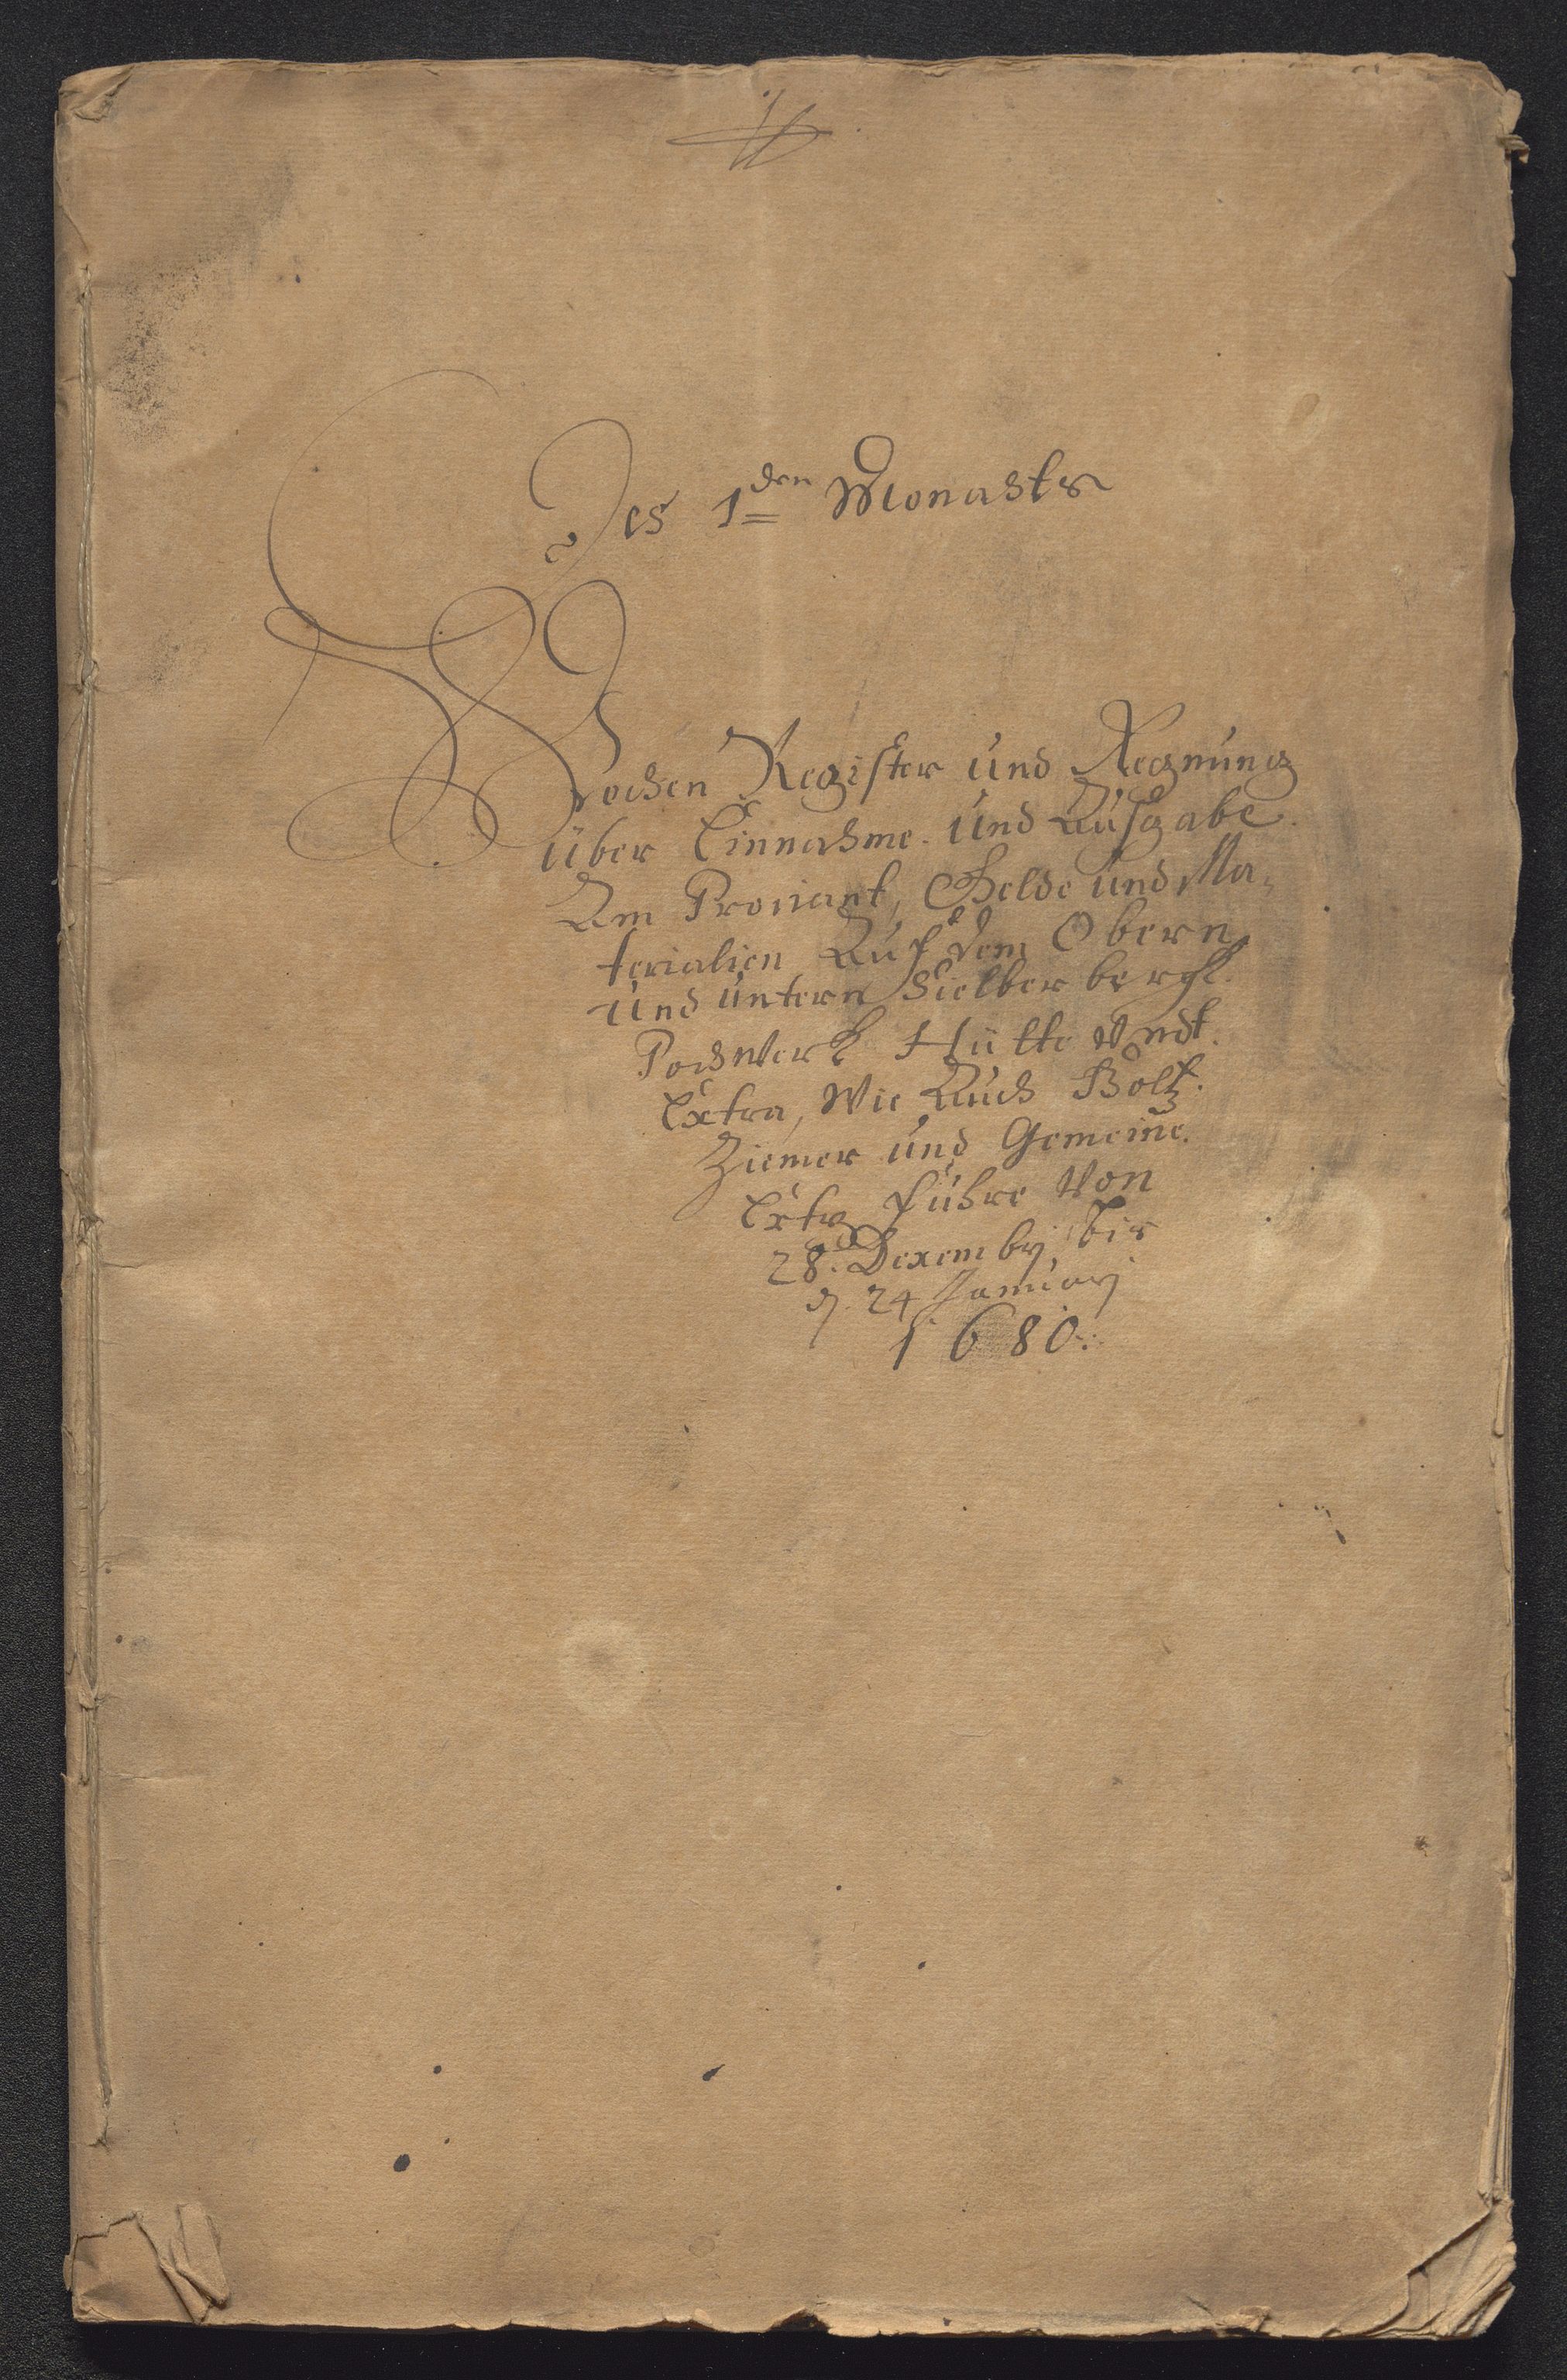 Des 1den Monahts
Wochen Register und Regnung
über Einnahme. und Ausgabe.
Am Proviant, Gelde und Ma-
terialien Auf dem Obern
und untern Sielber bergk.
Pochwerk Hütte Vndt.
Extra, Wie Auch Holtz.
Ziemer und Gemeine.
Extra fuhre Von
28. Dexembrj bis
d. 24 Januarj
1680.